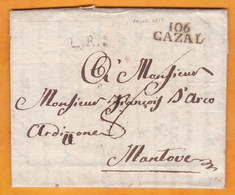 106
CAZAL
A Monsieur
Monsieur François D'Arco
Ardizzone
Mantove